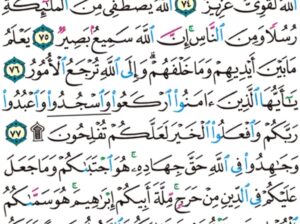 ٱللَّهَ لَقَوِيٌّ عَزِيزٌ ٧٤ ٱللَّهُ يَصْطَفِى مِنَ ٱلْمَلَـٰٓئِكَةِ
رُسُلًا وَمِنَ ٱلنَّاسِ إِنَّ ٱللَّهَ سَمِيعٌۢ بَصِيرٌ ٧٥ يَعْلَمُ
مَا بَيْنَ أَيْدِيهِمْ وَمَا خَلْفَهُمْ وَإِلَى ٱللَّهِ تُرْجَعُ ٱلْأُمُورُ ٧٦
يَـٰٓأَيُّهَا ٱلَّذِينَ ءَامَنُوا۟ ٱرْكَعُوا۟ وَٱسْجُدُوا۟ وَٱعْبُدُوا۟
رَبَّكُمْ وَٱفْعَلُوا۟ ٱلْخَيْرَ لَعَلَّكُمْ تُفْلِحُونَ ۩ ٧٧
وَجَـٰهِدُوا۟ فِى ٱللَّهِ حَقَّ جِهَادِهِۦ هُوَ ٱجْتَبَىٰكُمْ وَمَا جَعَلَ
عَلَيْكُمْ فِى ٱلدِّينِ مِنْ حَرَجٍ مِّلَّةَ أَبِيكُمْ إِبْرَٰهِيمَ هُوَ سَمَّىٰكُمُ